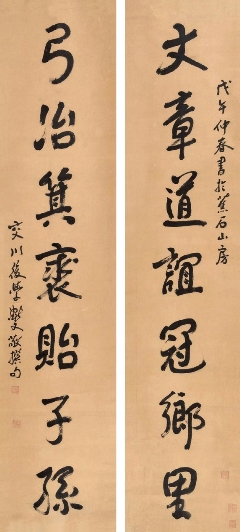 文章道誼冠鄉里
戊午仲春書於蕉石山房
弓冶箕裘貽子孫
交川後學 敬撰句